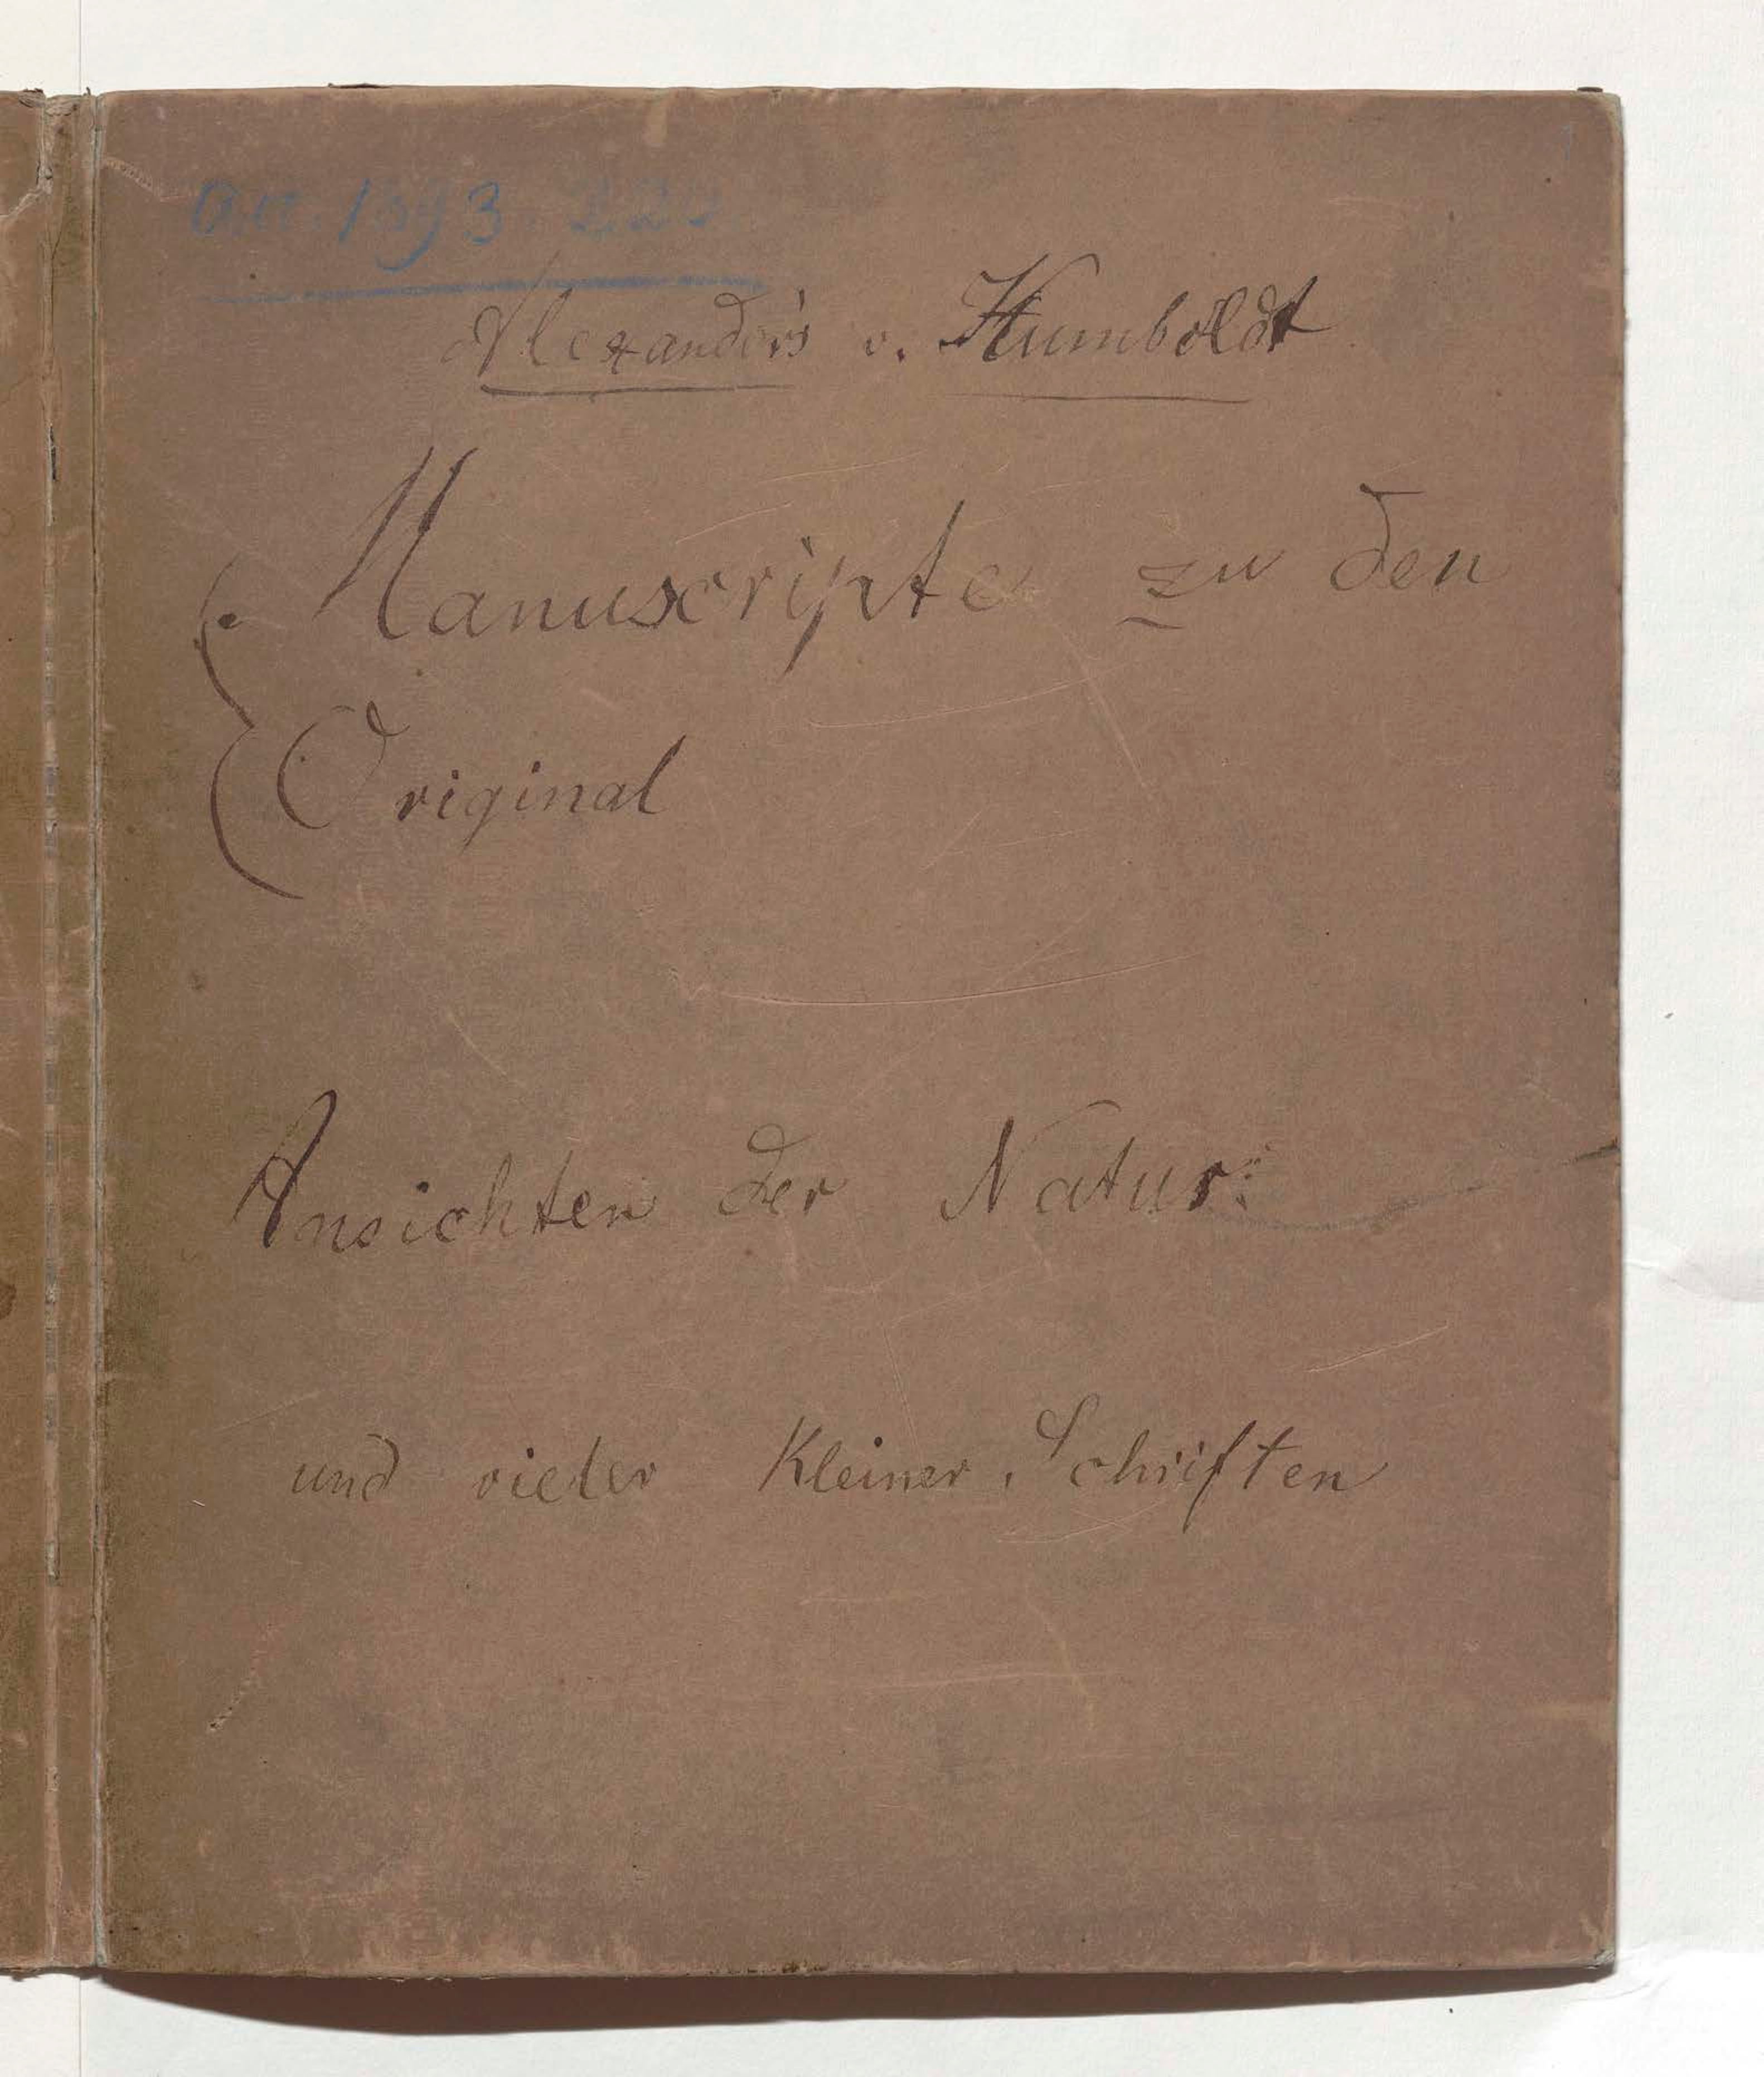 acc. 1893. 220
Alexander's v. Humboldt
Manuscripte zu den
Original
Ansichten der Natur:
und vieler Kleiner Schriften